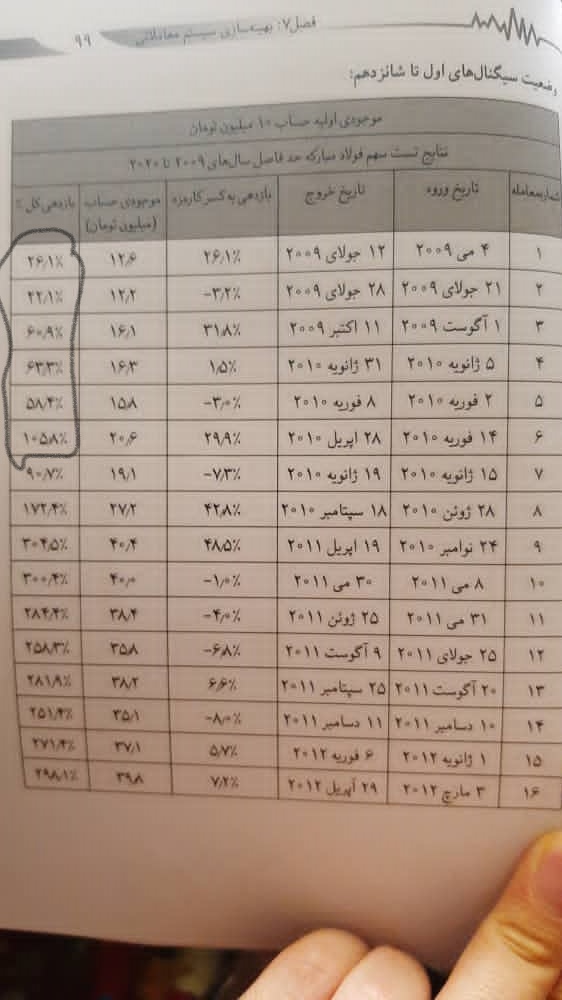 فصل۷: بهینه‌سازی سیستم معاملاتی ۹۹
وضعیت سیگنال‌های اول تا شانزدهم:
موجودی اولیه حساب ۱۰ میلیون تومان
نتایج تست سهم فولاد مبارکه حد فاصل سال‌های ۲۰۰۹ تا ۲۰۲۰
شماره‌معامله تاریخ ورود تاریخ خروج بازدهی به کسر کارمزد موجودی حساب (میلیون تومان) بازدهی کل ٪
۱ ۴ می ۲۰۰۹ ۱۲ جولای ۲۰۰۹ ۲۶٫۱٪ ۱۲٫۶ ۲۶٫۱٪
۲ ۲۱ جولای ۲۰۰۹ ۲۸ جولای ۲۰۰۹ -۳٫۲٪ ۱۲٫۲ ۲۲٫۱٪
۳ ۱ آگوست ۲۰۰۹ ۱۱ اکتبر ۲۰۰۹ ۳۱٫۸٪ ۱۶٫۱ ۶۰٫۹٪
۴ ۵ ژانویه ۲۰۱۰ ۳۱ ژانویه ۲۰۱۰ ۱٫۵٪ ۱۶٫۳ ۶۳٫۳٪
۵ ۲ فوریه ۲۰۱۰ ۸ فوریه ۲۰۱۰ -۳٫۰٪ ۱۵٫۸ ۵۸٫۴٪
۶ ۱۴ فوریه ۲۰۱۰ ۲۸ اپریل ۲۰۱۰ ۲۹٫۹٪ ۲۰٫۶ ۱۰۵٫۸٪
۷ ۱۵ ژانویه ۲۰۱۰ ۱۹ ژانویه ۲۰۱۰ -۷٫۳٪ ۱۹٫۱ ۹۰٫۷٪
۸ ۲۸ ژوئن ۲۰۱۰ ۱۸ سپتامبر ۲۰۱۰ ۴۲٫۸٪ ۲۷٫۲ ۱۷۲٫۴٪
۹ ۲۴ نوامبر ۲۰۱۰ ۱۹ اپریل ۲۰۱۱ ۴۸٫۵٪ ۴۰٫۴ ۳۰۴٫۵٪
۱۰ ۸ می ۲۰۱۱ ۳۰ می ۲۰۱۱ -۱٫۰٪ ۴۰٫۰ ۳۰۰٫۴٪
۱۱ ۳۱ می ۲۰۱۱ ۲۵ ژوئن ۲۰۱۱ -۴٫۰٪ ۳۸٫۴ ۲۸۴٫۴٪
۱۲ ۲۵ جولای ۲۰۱۱ ۹ آگوست ۲۰۱۱ -۶٫۸٪ ۳۵٫۸ ۲۵۸٫۳٪
۱۳ ۲۰ آگوست ۲۰۱۱ ۲۵ سپتامبر ۲۰۱۱ ۶٫۶٪ ۳۸٫۲ ۲۸۱٫۹٪
۱۴ ۱۰ دسامبر ۲۰۱۱ ۱۱ دسامبر ۲۰۱۱ -۸٫۰٪ ۳۵٫۱ ۲۵۱٫۴٪
۱۵ ۱ ژانویه ۲۰۱۲ ۶ فوریه ۲۰۱۲ ۵٫۷٪ ۳۷٫۱ ۲۷۱٫۴٪
۱۶ ۳ مارچ ۲۰۱۲ ۲۹ آپریل ۲۰۱۲ ۷٫۲٪ ۳۹٫۸ ۲۹۸٫۱٪